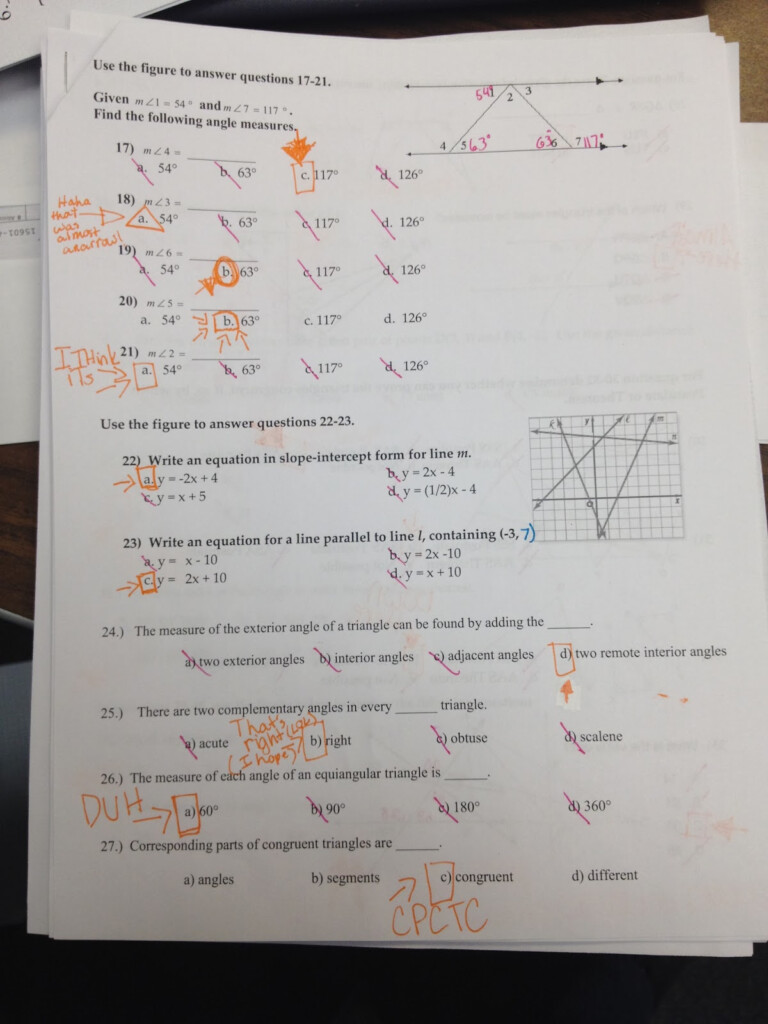 Use the figure to answer questions 17-21.
Given m∠1 = 54 ° and m∠7 = 117 °.
Find the following angle measures.
54° 1 2 3
4 5 63° 63° 6 7 117°
17) m∠4 = ________
a. 54° b. 63° c. 117° d. 126°
Haha that was almost an arrow!
18) m∠3 = ________
a. 54° b. 63° c. 117° d. 126°
19) m∠6 = ________
a. 54° b. 63° c. 117° d. 126°
20) m∠5 = ________
a. 54° b. 63° c. 117° d. 126°
I THink iTs
21) m∠2 = ________
a. 54° b. 63° c. 117° d. 126°
Use the figure to answer questions 22-23.
k y ℓ m
n
x
O
22) Write an equation in slope-intercept form for line m.
a. y = -2x + 4 b. y = 2x - 4
c. y = x + 5 d. y = (1/2)x - 4
23) Write an equation for a line parallel to line l, containing (-3, 7)
a. y = x - 10 b. y = 2x -10
c. y = 2x + 10 d. y = x + 10
24.) The measure of the exterior angle of a triangle can be found by adding the ______.
a) two exterior angles b) interior angles c) adjacent angles d) two remote interior angles
25.) There are two complementary angles in every ______ triangle.
That's right
(I hope)
a) acute b) right c) obtuse d) scalene
26.) The measure of each angle of an equiangular triangle is ______.
DUH
a) 60° b) 90° c) 180° d) 360°
27.) Corresponding parts of congruent triangles are ______.
a) angles b) segments c) congruent d) different
CPCTC